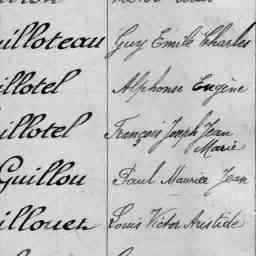 uilloteau Guy Emile Charles
uillotel Alphonse Eugène
uillotel François Joseph Jean
Marie
Guillou Paul Maurice Jean
uillouer Louis Victor Aristide